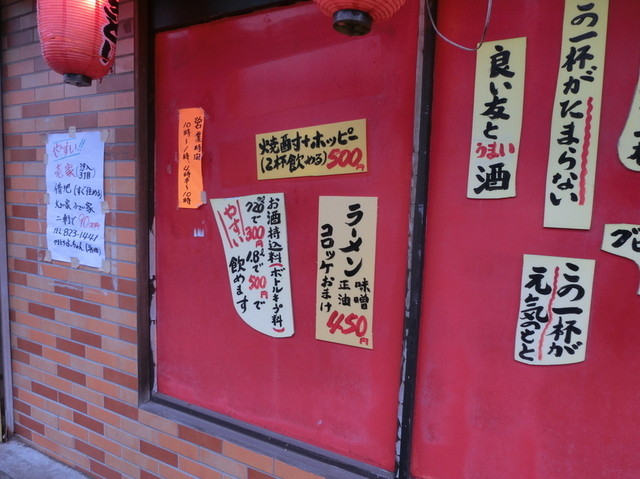 やすい!!
売家
借地(すぐ住める)
二軒で90万円
TEL 823-1441
営業時間
10時〜1時
4時半〜10
焼酎+ホッピー
(2杯飲める)500円
お酒持込料(ボトルキープ料)
720で300円 1.8ℓで500円で
やすい
飲めます
ラーメン 味噌
正油
コロッケおまけ
450円
良い友と
うまい酒
この一杯がたまらない
この一杯が
元気のもと